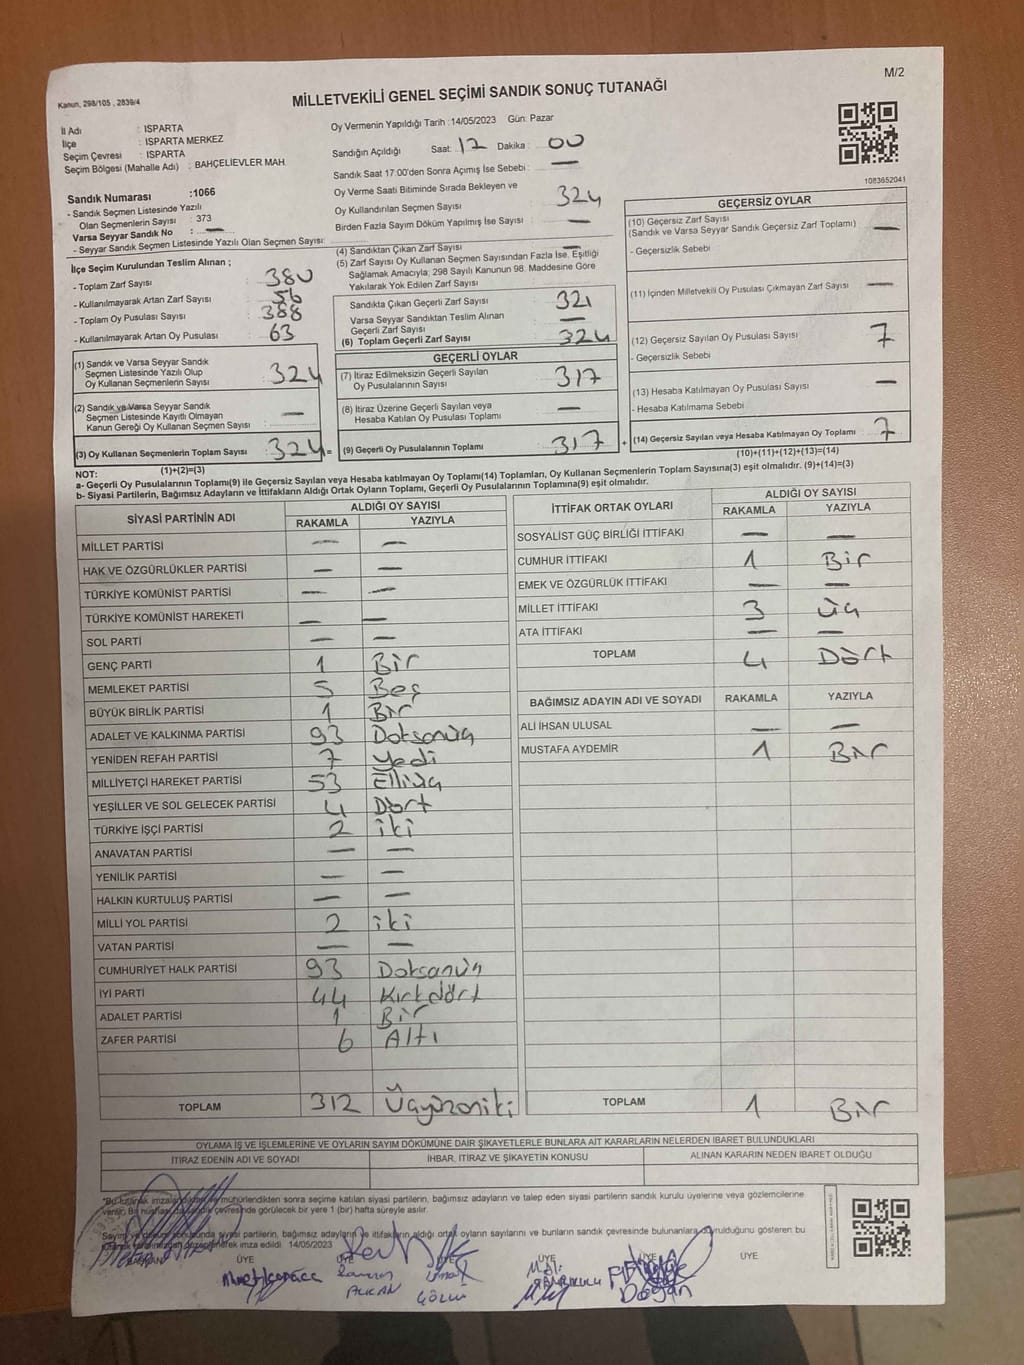 M/2
Kanun, 298/105 , 2839/4
MİLLETVEKİLİ GENEL SEÇİMİ SANDIK SONUÇ TUTANAĞI
İl Adı : ISPARTA
İlçe : ISPARTA MERKEZ
Seçim Çevresi : ISPARTA
Seçim Bölgesi (Mahalle Adı) : BAHÇELİEVLER MAH
Sandık Numarası :1066
- Sandık Seçmen Listesinde Yazılı
Olan Seçmenlerin Sayısı : 373
Varsa Seyyar Sandık No : —
- Seyyar Sandık Seçmen Listesinde Yazılı Olan Seçmen Sayısı:
İlçe Seçim Kurulundan Teslim Alınan ;
- Toplam Zarf Sayısı : 380
- Kullanılmayarak Artan Zarf Sayısı : 56
- Toplam Oy Pusulası Sayısı : 388
- Kullanılmayarak Artan Oy Pusulası : 63
(1) Sandık ve Varsa Seyyar Sandık
Seçmen Listesinde Yazılı Olup
Oy Kullanan Seçmenlerin Sayısı : 324
(2) Sandık ve Varsa Seyyar Sandık
Seçmen Listesinde Kayıtlı Olmayan
Kanun Gereği Oy Kullanan Seçmen Sayısı : —
(3) Oy Kullanan Seçmenlerin Toplam Sayısı : 324 =
(1)+(2)=(3)
Oy Vermenin Yapıldığı Tarih :14/05/2023 Gün: Pazar
Sandığın Açıldığı Saat: 17 Dakika : 00
Sandık Saat 17:00'den Sonra Açımış İse Sebebi : —
Oy Verme Saati Bitiminde Sırada Bekleyen ve
Oy Kullandırılan Seçmen Sayısı : 324
Birden Fazla Sayım Döküm Yapılmış İse Sayısı : —
(4) Sandıktan Çıkan Zarf Sayısı : —
(5) Zarf Sayısı Oy Kullanan Seçmen Sayısından Fazla İse, Eşitliği
Sağlamak Amacıyla; 298 Sayılı Kanunun 98. Maddesine Göre
Yakılarak Yok Edilen Zarf Sayısı
Sandıkta Çıkan Geçerli Zarf Sayısı : 321
Varsa Seyyar Sandıktan Teslim Alınan
Geçerli Zarf Sayısı : —
(6) Toplam Geçerli Zarf Sayısı : 324
GEÇERLİ OYLAR
(7) İtiraz Edilmeksizin Geçerli Sayılan
Oy Pusulalarının Sayısı : 317
(8) İtiraz Üzerine Geçerli Sayılan veya
Hesaba Katılan Oy Pusulası Toplamı : —
(9) Geçerli Oy Pusulalarının Toplamı : 317 +
1083652041
GEÇERSİZ OYLAR
(10) Geçersiz Zarf Sayısı
(Sandık ve Varsa Seyyar Sandık Geçersiz Zarf Toplamı) : —
- Geçersizlik Sebebi
(11) İçinden Milletvekili Oy Pusulası Çıkmayan Zarf Sayısı : —
(12) Geçersiz Sayılan Oy Pusulası Sayısı : 7
- Geçersizlik Sebebi
(13) Hesaba Katılmayan Oy Pusulası Sayısı : —
- Hesaba Katılmama Sebebi
(14) Geçersiz Sayılan veya Hesaba Katılmayan Oy Toplamı : 7
(10)+(11)+(12)+(13)=(14)
NOT:
a- Geçerli Oy Pusulalarının Toplamı(9) ile Geçersiz Sayılan veya Hesaba Katılmayan Oy Toplamı(14) Toplamları, Oy Kullanan Seçmenlerin Toplam Sayısına(3) eşit olmalıdır. (9)+(14)=(3)
b- Siyasi Partilerin, Bağımsız Adayların ve İttifakların Aldığı Ortak Oyların Toplamı, Geçerli Oy Pusulalarının Toplamına(9) eşit olmalıdır.
SİYASİ PARTİNİN ADI ALDIĞI OY SAYISI
RAKAMLA YAZIYLA
MİLLET PARTİSİ — —
HAK VE ÖZGÜRLÜKLER PARTİSİ — —
TÜRKİYE KOMÜNİST PARTİSİ — —
TÜRKİYE KOMÜNİST HAREKETİ — —
SOL PARTİ — —
GENÇ PARTİ 1 Bir
MEMLEKET PARTİSİ 5 Beş
BÜYÜK BİRLİK PARTİSİ 1 Bir
ADALET VE KALKINMA PARTİSİ 93 Doksanüç
YENİDEN REFAH PARTİSİ 7 Yedi
MİLLİYETÇİ HAREKET PARTİSİ 53 Elliüç
YEŞİLLER VE SOL GELECEK PARTİSİ 4 Dört
TÜRKİYE İŞÇİ PARTİSİ 2 iki
ANAVATAN PARTİSİ — —
YENİLİK PARTİSİ — —
HALKIN KURTULUŞ PARTİSİ — —
MİLLİ YOL PARTİSİ 2 iki
VATAN PARTİSİ — —
CUMHURİYET HALK PARTİSİ 93 Doksanüç
İYİ PARTİ 44 Kırkdört
ADALET PARTİSİ 1 Bir
ZAFER PARTİSİ 6 Altı
TOPLAM 312 Üçyüzoniki
İTTİFAK ORTAK OYLARI ALDIĞI OY SAYISI
RAKAMLA YAZIYLA
SOSYALİST GÜÇ BİRLİĞİ İTTİFAKI — —
CUMHUR İTTİFAKI 1 Bir
EMEK VE ÖZGÜRLÜK İTTİFAKI — —
MİLLET İTTİFAKI 3 üç
ATA İTTİFAKI — —
TOPLAM 4 Dört
BAĞIMSIZ ADAYIN ADI VE SOYADI RAKAMLA YAZIYLA
ALİ İHSAN ULUSAL — —
MUSTAFA AYDEMİR 1 Bir
TOPLAM 1 Bir
OYLAMA İŞ VE İŞLEMLERİNE VE OYLARIN SAYIM DÖKÜMÜNE DAİR ŞİKAYETLERLE BUNLARA AİT KARARLARIN NELERDEN İBARET BULUNDUKLARI
İTİRAZ EDENİN ADI VE SOYADI İHBAR, İTİRAZ VE ŞİKAYETİN KONUSU ALINAN KARARIN NEDEN İBARET OLDUĞU
*Bu tutanak imzalandıktan ve mühürlendikten sonra seçime katılan siyasi partilerin, bağımsız adayların ve talep eden siyasi partilerin sandık kurulu üyelerine veya gözlemcilerine
verilir. Bir nüshası da sandık çevresinde görülecek bir yere 1 (bir) hafta süreyle asılır.
Sayım ve döküm sonucunda siyasi partilerin, bağımsız adayların ve ittifakların aldığı ortak oyların sayılarını ve bunların sandık çevresinde bulunanlara duyurulduğunu gösteren bu
tutanak tarafımızdan düzenlenerek imza edildi. 14/05/2023
BAŞKAN ÜYE ÜYE ÜYE ÜYE ÜYE ÜYE
Ramazan
ALKAN
GÖLLÜ
Doğan